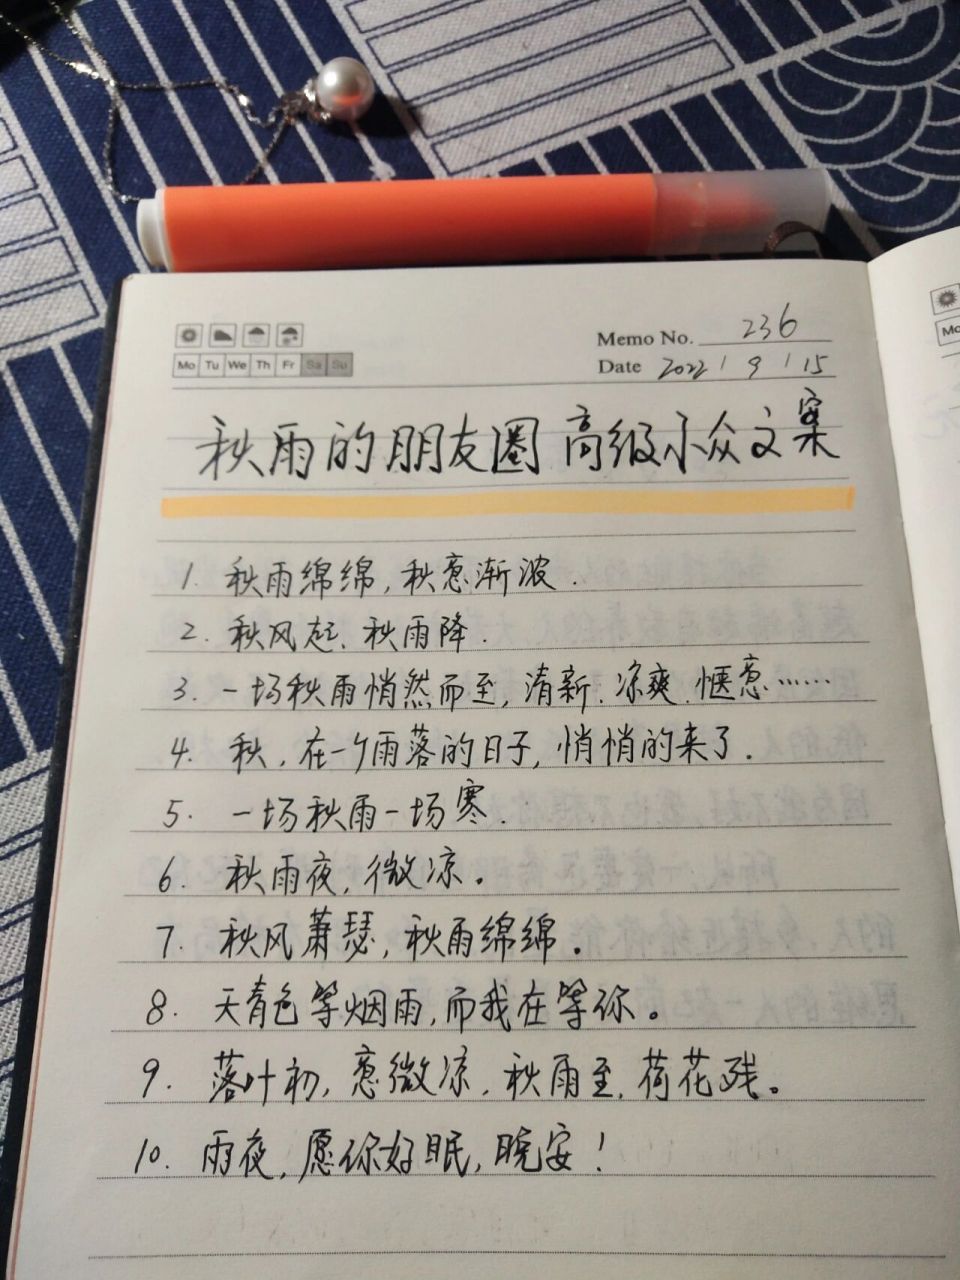 Memo No. 236
Mo Tu We Th Fr Sa Su
Date 2022 / 9 / 15
秋雨的朋友圈 高级小众文案
1. 秋雨绵绵,秋意渐浓.
2. 秋风起、秋雨降.
3. 一场秋雨悄然而至,清新.凉爽.惬意……
4. 秋,在一个雨落的日子,悄悄的来了.
5. 一场秋雨一场寒.
6. 秋雨夜,微凉。
7. 秋风萧瑟,秋雨绵绵。
8. 天青色等烟雨,而我在等你。
9. 落叶初,意微凉,秋雨至,荷花残。
10. 雨夜,愿你好眠,晚安!